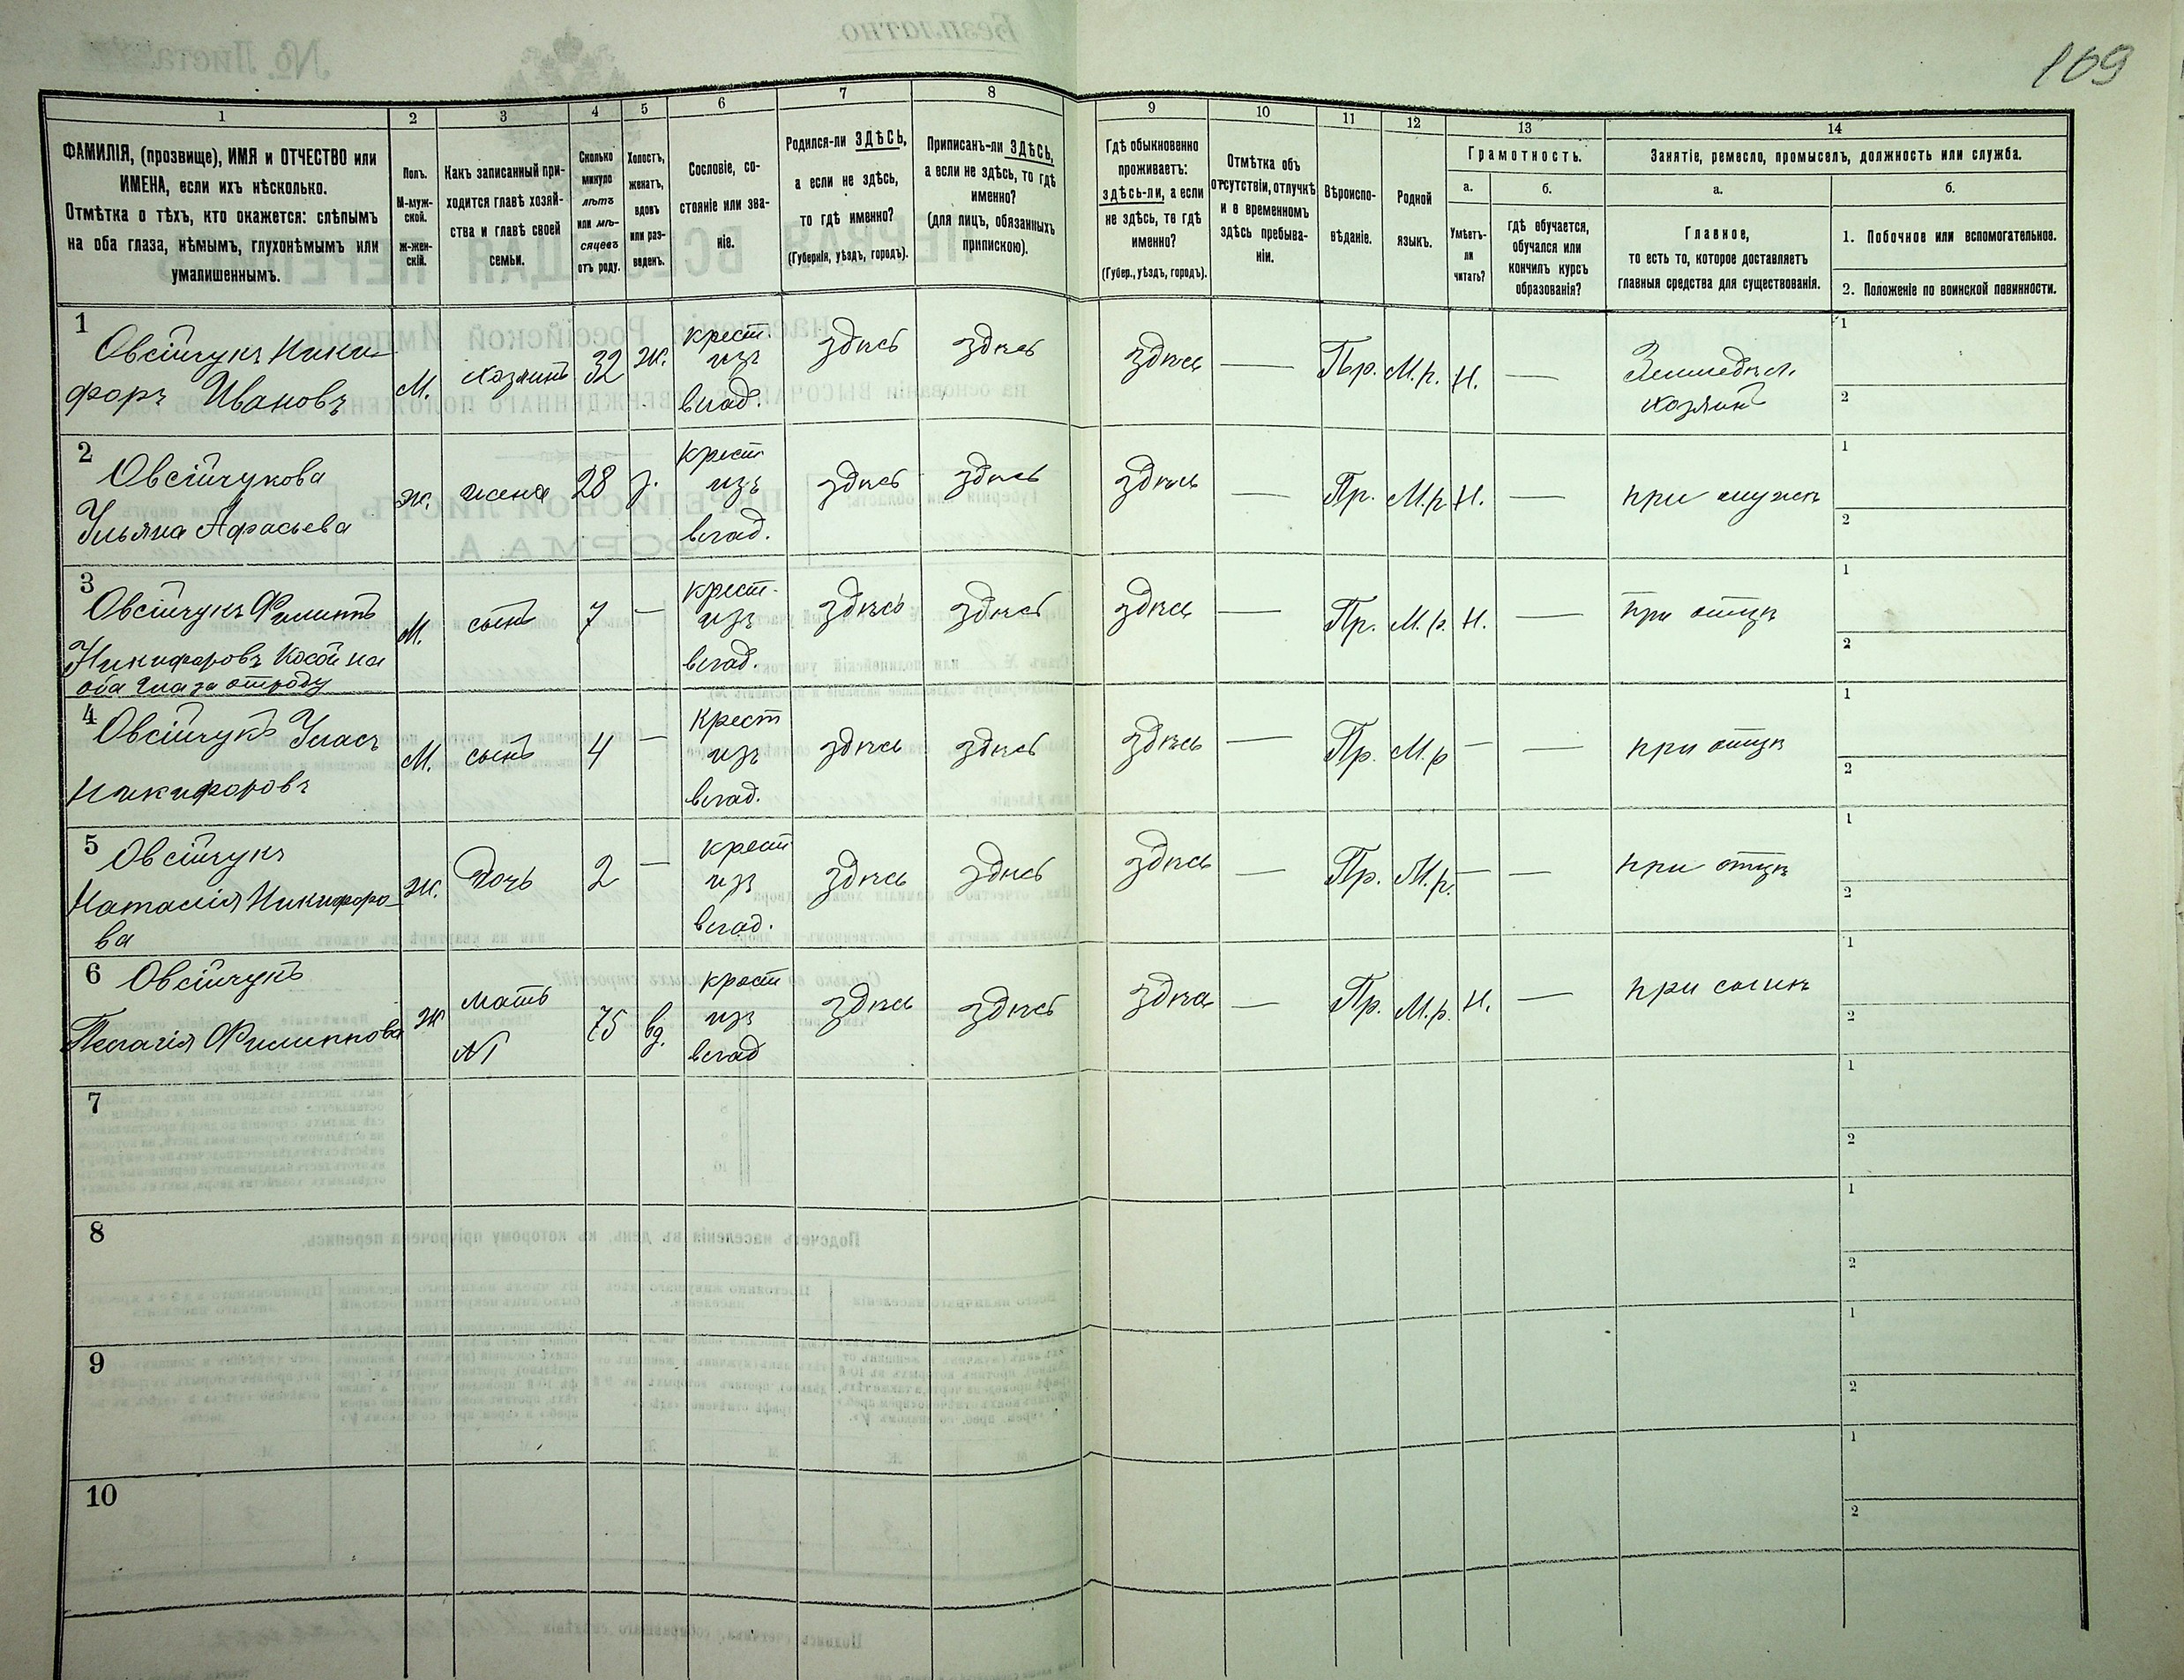 169
1 2 3 4 5 6 7 8 9 10 11 12 13 14
ФАМИЛІЯ, (прозвище), ИМЯ и ОТЧЕСТВО или
ИМЕНА, если ихъ нѣсколько.
Отмѣтка о тѣхъ, кто окажется: слѣпымъ
на оба глаза, нѣмымъ, глухонѣмымъ или
умалишеннымъ.
Полъ.
М-муж-
ской.
Ж-жен-
скій.
Какъ записанный при-
ходится главѣ хозяй-
ства и главѣ своей
семьи.
Сколько
минуло
лѣтъ
или мѣ-
сяцевъ
отъ роду.
Холостъ,
женатъ,
вдовъ
или раз-
веденъ.
Сословіе, со-
стояніе или зва-
ніе.
Родился-ли ЗДѢСЬ,
а если не здѣсь,
то гдѣ именно?
(Губернія, уѣздъ, городъ).
Приписанъ-ли ЗДѢСЬ,
а если не здѣсь, то гдѣ
именно?
(для лицъ, обязанныхъ
припискою).
Гдѣ обыкновенно
проживаетъ:
здѣсь-ли, а если
не здѣсь, то гдѣ
именно?
(Губер., уѣздъ, городъ).
Отмѣтка объ
отсутствіи, отлучкѣ
и о временномъ
здѣсь пребыва-
ніи.
Вѣроиспо-
вѣданіе.
Родной
языкъ.
Грамотность.
а.
Умѣетъ-
ли
читать?
б.
гдѣ обучается,
обучался или
кончилъ курсъ
образованія?
Занятіе, ремесло, промыселъ, должность или служба.
а.
Главное,
то есть то, которое доставляетъ
главныя средства для существованія.
б.
1. Побочное или вспомогательное.
2. Положеніе по воинской повинности.
1
Овсійчукъ Ники-
форъ Ивановъ
М.
хозяинъ
32
ж.
крест.
изъ
влад.
здѣсь
здѣсь
здѣсь
—
Пр.
М.р.
Н.
—
Земледѣл.
хозяинъ
1
2
2
Овсійчукова
Ульяна Афасьева
ж.
жена
28
з.
крест
изъ
влад.
здѣсь
здѣсь
здѣсь
—
Пр.
М.р
Н.
—
при мужѣ
1
2
3
Овсійчукъ Филиппъ
Никифоровъ косой на
оба глаза отроду
М.
сынъ
7
—
крест.
изъ
влад.
здѣсь
здѣсь
здѣсь
—
Пр.
М.р.
Н.
—
при отцѣ
1
2
4
Овсійчукъ Уласъ
Никифоровъ
М.
сынъ
4
—
крест
изъ
влад.
здѣсь
здѣсь
здѣсь
—
Пр.
М.р
—
—
при отцѣ
1
2
5
Овсійчукъ
Наталія Никифоро-
ва
ж.
дочь
2
—
крест
изъ
влад.
здѣсь
здѣсь
здѣсь
—
Пр.
М.р.
—
—
при отцѣ
1
2
6
Овсійчукъ
Пелагія Филиппова
ж
мать
№1
75
вд.
крест
изъ
влад
здѣсь
здѣсь
здѣсь
—
Пр.
М.р.
Н.
—
при сынѣ
1
2
7
1
2
8
1
2
9
1
2
10
1
2